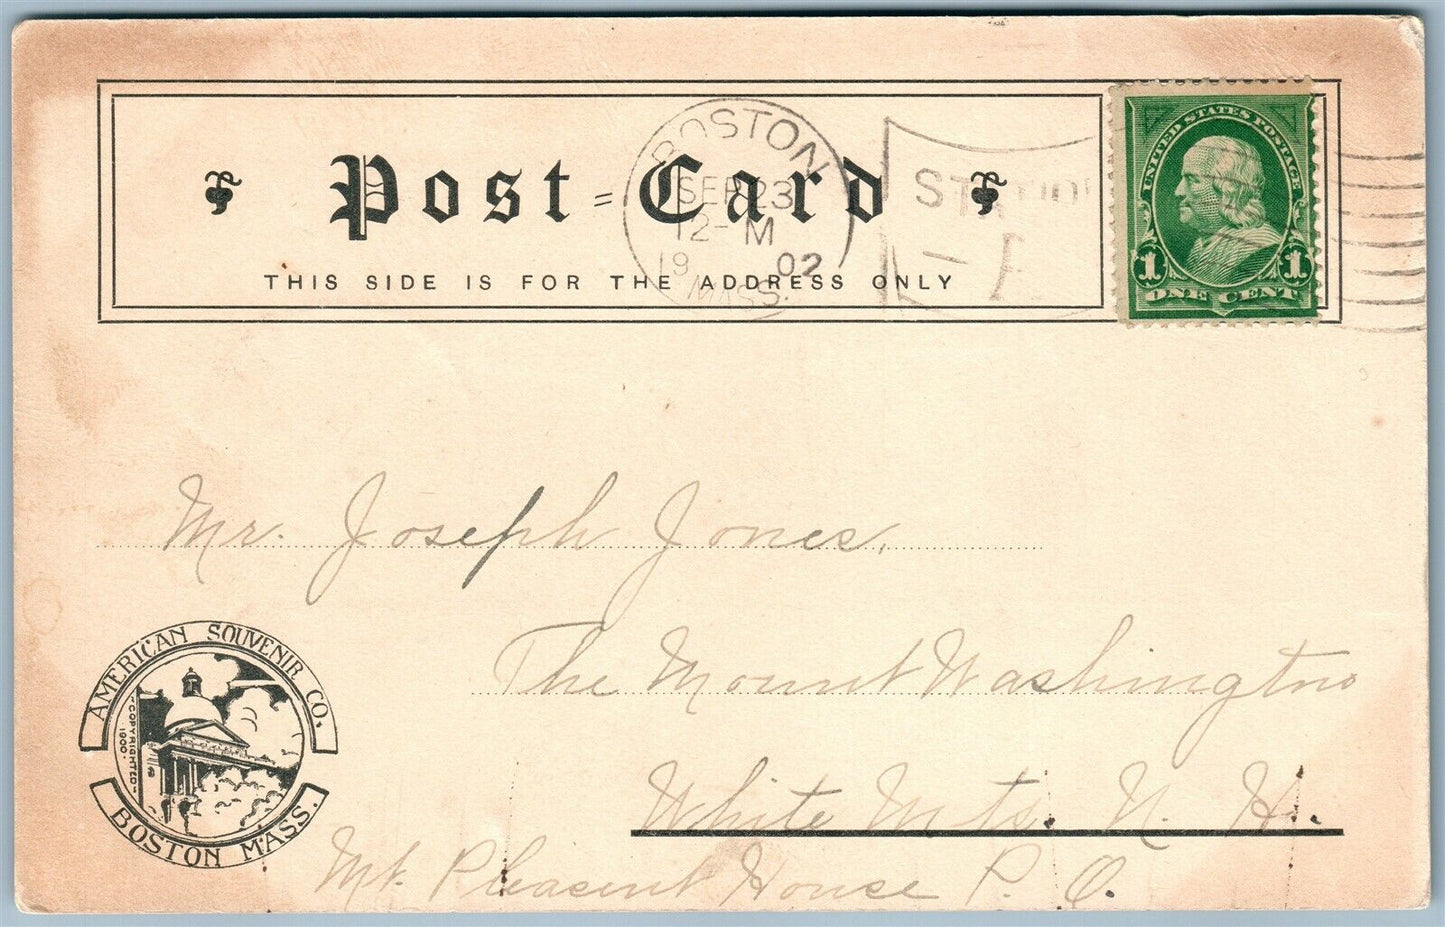 Post = Card
THIS SIDE IS FOR THE ADDRESS ONLY
BOSTON
SEP 23
12-M
1902
MASS.
STATION
UNITED STATES POSTAGE
1 1
ONE CENT
Mr. Joseph Jones.
The Mount Washington
White Mts. N. H.
Mt. Pleasant House P. O.
AMERICAN SOUVENIR CO.
COPYRIGHTED
1900.
BOSTON MASS.